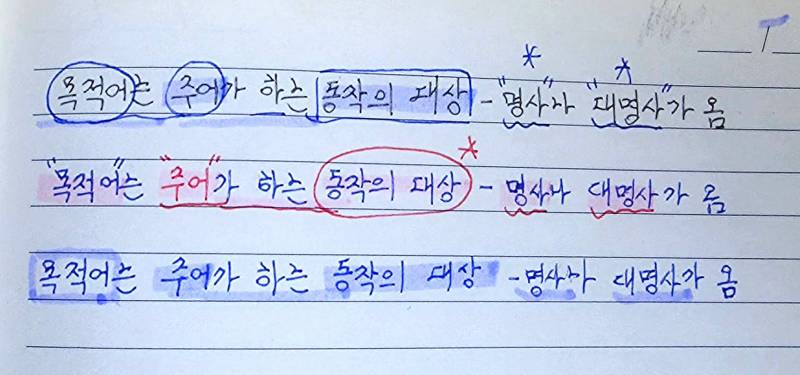 목적어는 주어가 하는 동작의 대상 - "명사"나 "대명사"가 옴
"목적어"는 "주어"가 하는 동작의 대상 - 명사나 대명사가 옴
목적어는 주어가 하는 동작의 대상 - 명사나 대명사가 옴